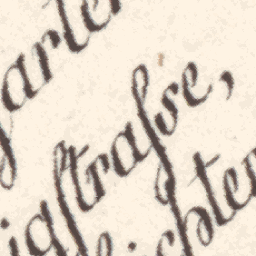 arten
igſtraſse,
ichten